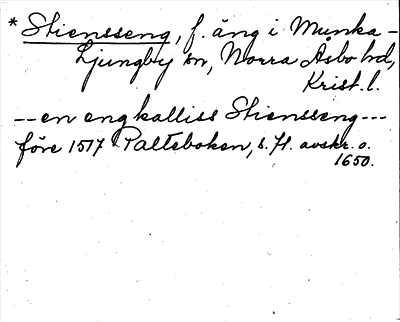 * Stiensseng, f. äng i Munka-
Ljungby sn, Norra Åsbo hd,
Krist. l.
--en eng kalliss Stiensseng---
före 1517 Palteboken, s. 71. avskr. o.
1650.